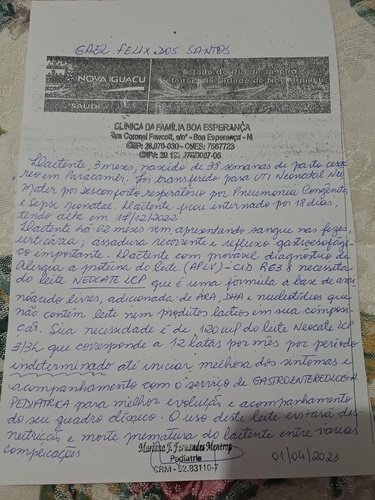 GAEL FELIX DOS SANTOS
NOVA IGUAÇU
SAÚDE
Estado do Rio de Janeiro
Prefeitura da Cidade de Nova Iguaçu
CLINICA DA FAMÍLIA BOA ESPERANÇA
Rua Coronel Fawcett, s/nº - Boa Esperança - NI
CEP: 26.070-030 - CNES: 7687723
Lactente, 3 meses, nascido de 38 semanas de parto cesa
reo em Paracambi. Foi transferido para UTI Neonatal
Mater por desconforto respiratório por Pneumonia Congênita
e Sepse Neonatal. Lactente ficou internado por 18 dias,
tendo alta em 17/12/2022
Lactente há 02 meses vem apresentando sangue nas fezes,
urticária, assadura recorrente e refluxo gastroesofági-
co importante. Lactente com provável diagnostico de
Alergia a proteína do leite (APLV) - CID R63.8 necessita
do leite NEOCATE LCP que é uma formula a base de ami
noácido livres, adicionada de ARA, DHA e nucleotídios que
não contém leite nem produtos lacteos em sua composi-
ção. Sua necessidade é de 120 ml do leite Neocate LCP
3/3h que corresponde a 12 latas por mês por período
indeterminado até iniciar melhora dos sintomas e
acompanhamento com o serviço de GASTROENTEROLOGIA
PEDIATRICA para melhor evolução e acompanhamento
do seu quadro clínico. O uso deste leite evitará des
nutrição e morte prematura do lactente entre varias
complicações.
Mariana F. Fernandes
Pediatria
CRM - 52.83110-7
01/04/2023